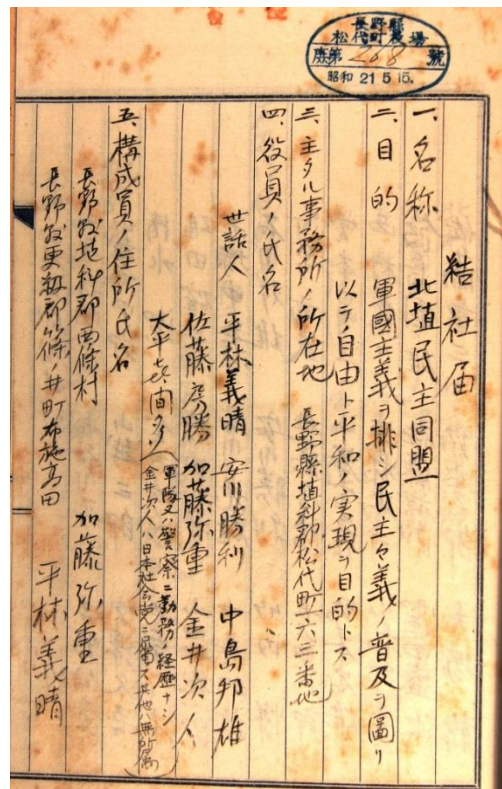 長野縣
松代町農場
庶第268號
昭和 21.5.15.
結社届
一、名称 北埴民主同盟
二、目的 軍國主義ヲ排シ民主々義ノ普及ヲ圖リ
以テノ自由ト平和ノ実現ヲ目的トス
三、主タル事務所ノ所在地 長野縣埴科郡松代町一六三番地
四、役員ノ氏名
世話人 平林義晴 安川勝利 中島邦雄
佐藤房勝 加藤弥重 金井次人
大平喜間多
(軍隊又ハ警察ニ勤務ノ経歴ナシ
金井次人ハ日本社会党ニ属ス其他ハ無所属)
五、構成員ノ住所氏名
長野縣埴科郡西條村 加藤弥重
長野縣更級郡篠ノ井町布施高田 平林義晴